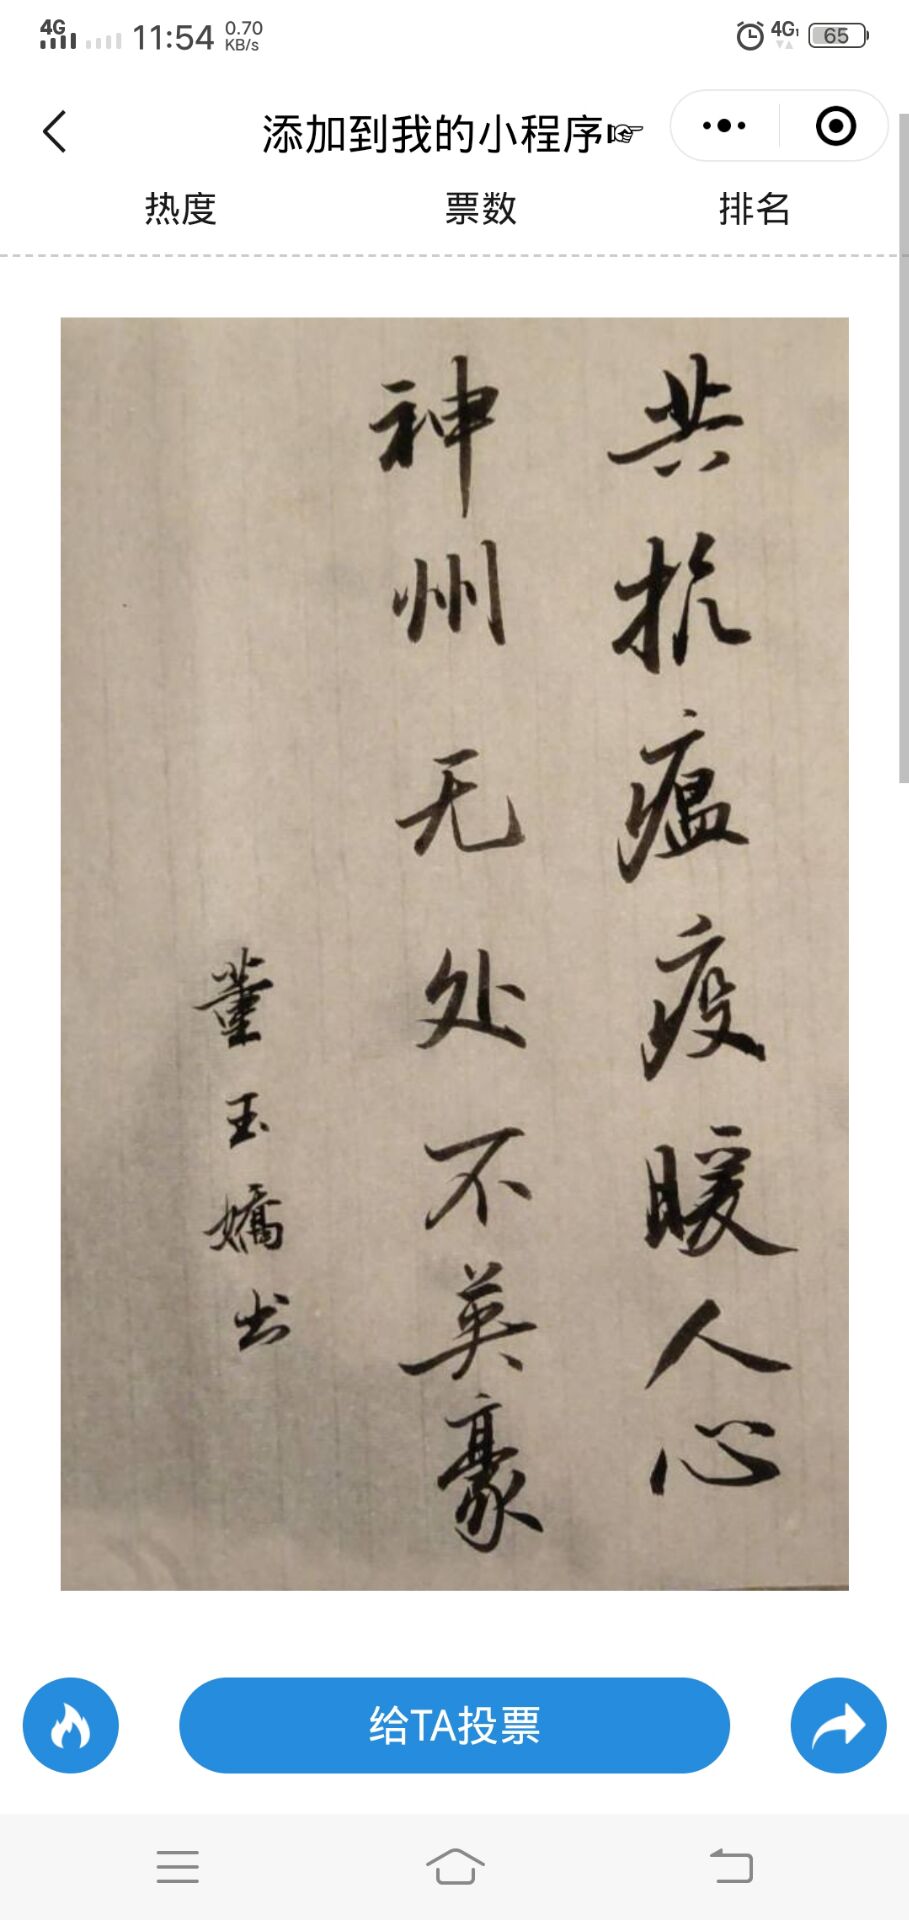 4G 11:54 0.70 KB/s 4G 65
添加到我的小程序☞
热度 票数 排名
共抗瘟疫暖人心
神州无处不英豪
董玉嬌书
给TA投票